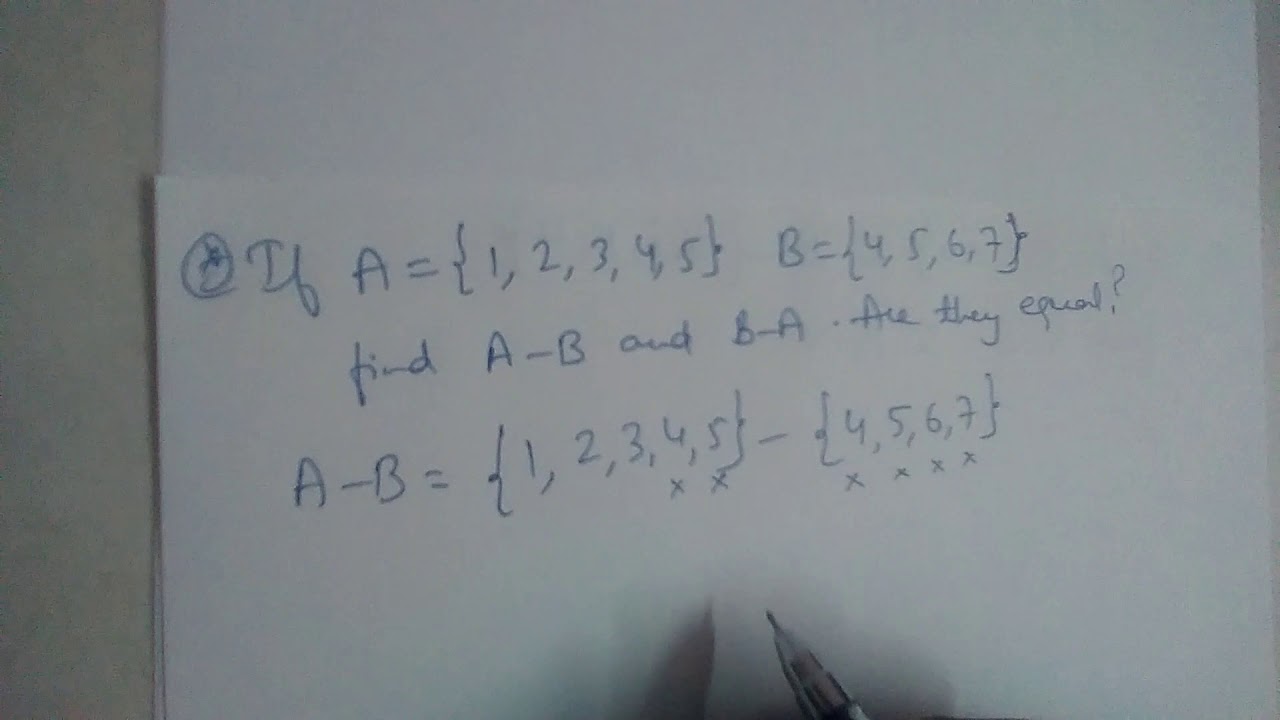 If A = {1, 2, 3, 4, 5} B = {4, 5, 6, 7}
find A - B and B - A . Are they equal?
A - B = {1, 2, 3, 4, 5} - {4, 5, 6, 7}
x x x x x x